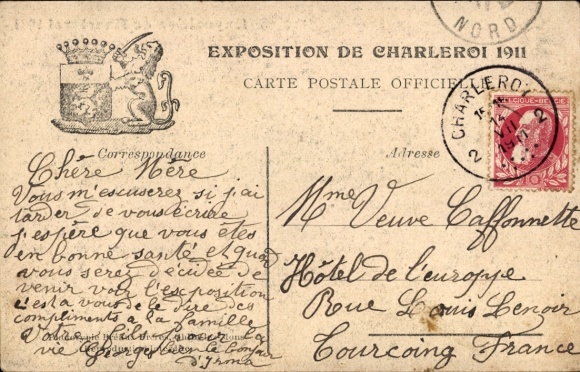 NORD
EXPOSITION DE CHARLEROI 1911
CARTE POSTALE OFFICIELLE
CHARLEROI 2
2
BELGIQUE-BELGIE
10
Correspondance
Adresse
Chère Mère
Vous m'escuserez si j'ai
tarder de vous écrire
j'espère que vous êtes
en bonne santé et quand
vous serez décidée de
venir voir l'exposition
c'est a vous de le dire des
compliments a la famille
Votre fils pour la
vie Georges bien le bonjour
d'Irma
Mme Veuve Caffonnette
Hôtel de l'europpe
Rue Louis Lenoir
Tourcoing France